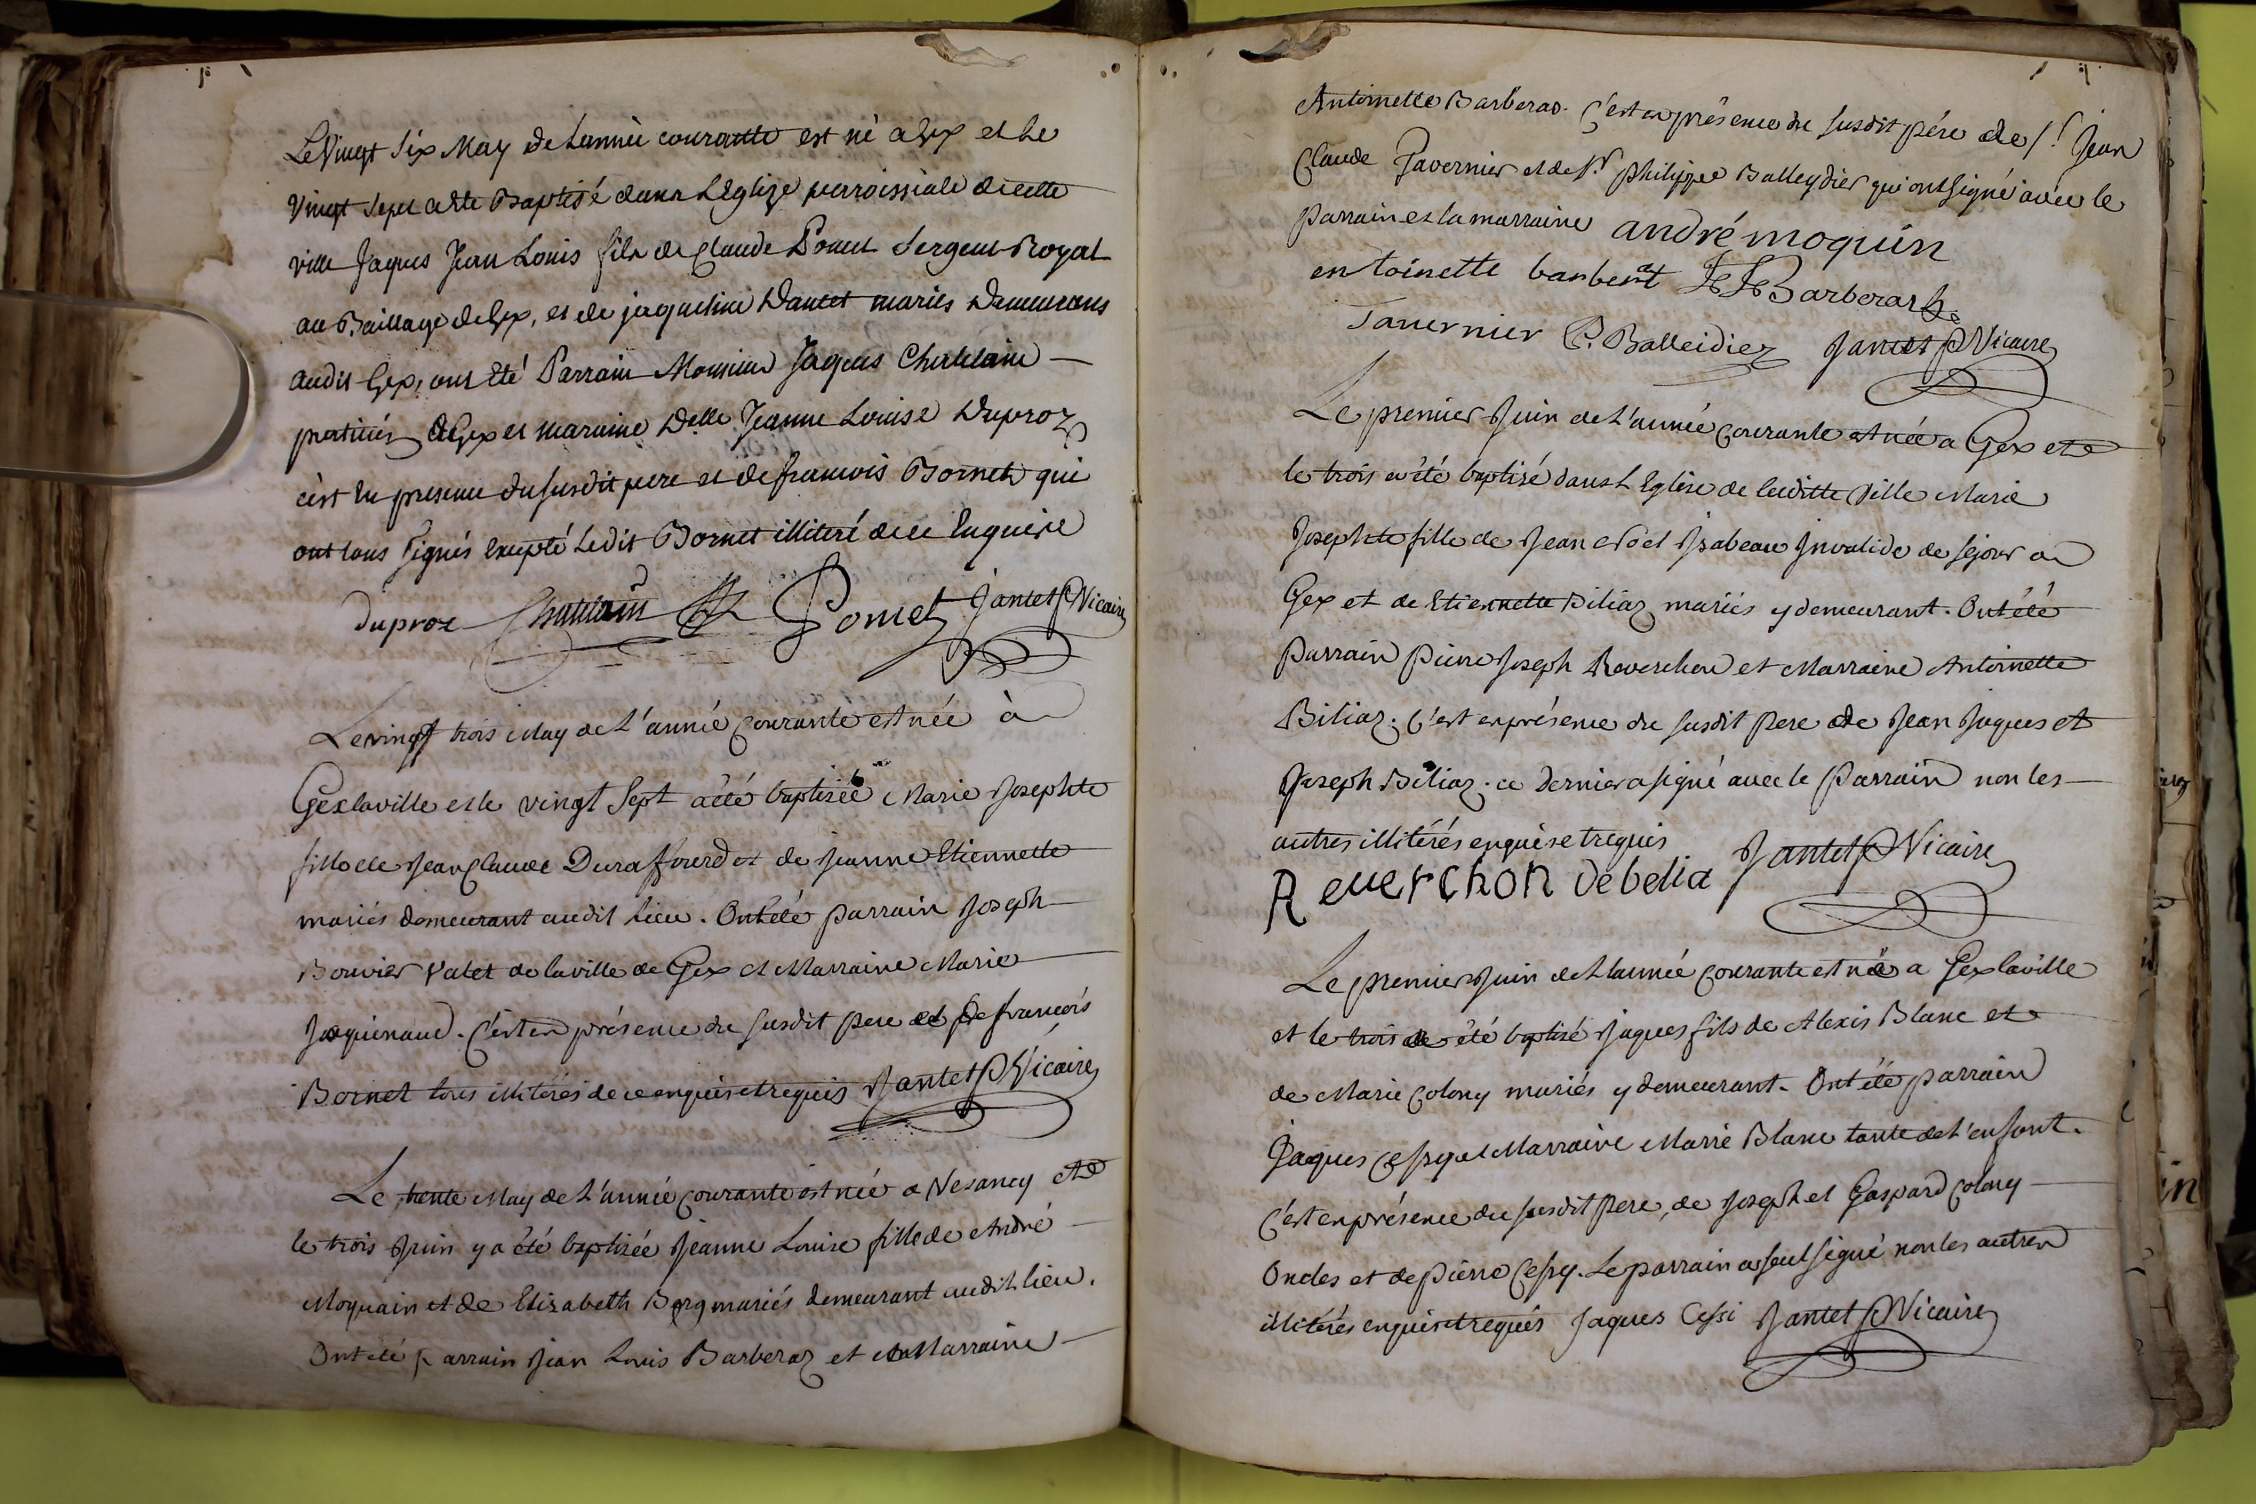 Le Vingt Six May de Lannèe courante est né a Gex et Le
Vingt Sept a ete Baptisé dans LEglize parroissiale de cette
ville Jaques Jean Louis fils de Claude Pomet Sergent Royal
au Baillage de Gex, et de jaqueline Dantet mariés Demeurans
audit Gex, ont Eté Parrain Monsieur Jaques Chatelain
praticien a Gex et maraine Delle Jeanne Louise Duproz
cèst En presence du susdit pere et de francois Bornet qui
ont tous signés Exepté Ledit Bornet illiteré de ce Enquis
duproz Chatelain Pomet Jantet P Vicaire
Le vingt trois May de L'année courante est née à
Gex la ville et le vingt Sept a été baptisée Marie Josephte
fille de Jean Claude Duraffourd et de Jeanne Etiennette
mariés demeurant audit Lieu. Ont été parrain Joseph
Bouvier Valet de la ville de Gex et Marraine Marie
Joquinaud. C'est en présence du susdit pere et de francois
Bornet tous illiterés de ce enquis et requis Jantet P Vicaire
Le trente May de L'année courante est née a Vesancy et
le trois Juin y a été baptisée Jeanne Louise fille de André
Moquain et de Elizabeth Borg mariés demeurant audit lieu.
Ont eté parrain Jean Louis Barberaz et Marraine
Antoinette Barberas. C'est en présence du susdit pére de Sr. Jean
Claude Tavernier et de Sr. philippe Balleydier qui ont signé avec le
parrain et la marraine andré moquin
entoinette barberat JL Barberas
Tavernier P. Balleidiez Jantet P Vicaire
Le premier Juin de L'année courante est née a Gex et
le trois a été baptisé dans L Eglise de laditte Ville Marie
Josephte fille de Jean Noel Isabeau Invalide de séjour a
Gex et de Etiennette Biliaz mariés y demeurant. Ont été
parrain Pierre Joseph Reverchon et Marraine Antoinette
Biliaz. C'est en présence du susdit pere de Jean Jaques et
Joseph Biliaz. ce dernier a signé avec le Parrain non les
autres illitérés enquis et requis
Reuerchon debelia Jantet P Vicaire
Le premier Juin de L'année courante est né a Gex la ville
et le trois a été baptisé Jaques fils de Alexis Blanc et
de Marie Colony mariés y demeurant. Ont été parrain
Jaques Cessy et Marraine Marie Blanc tante de L'enfant.
C'est en présence du susdit pere, de Joseph et Gaspard Colony
Oncles et de pierre Cessy. Le parrain a seul signé non les autres
illitérés enquis et requis Jaques Cessi Jantet P Vicaire